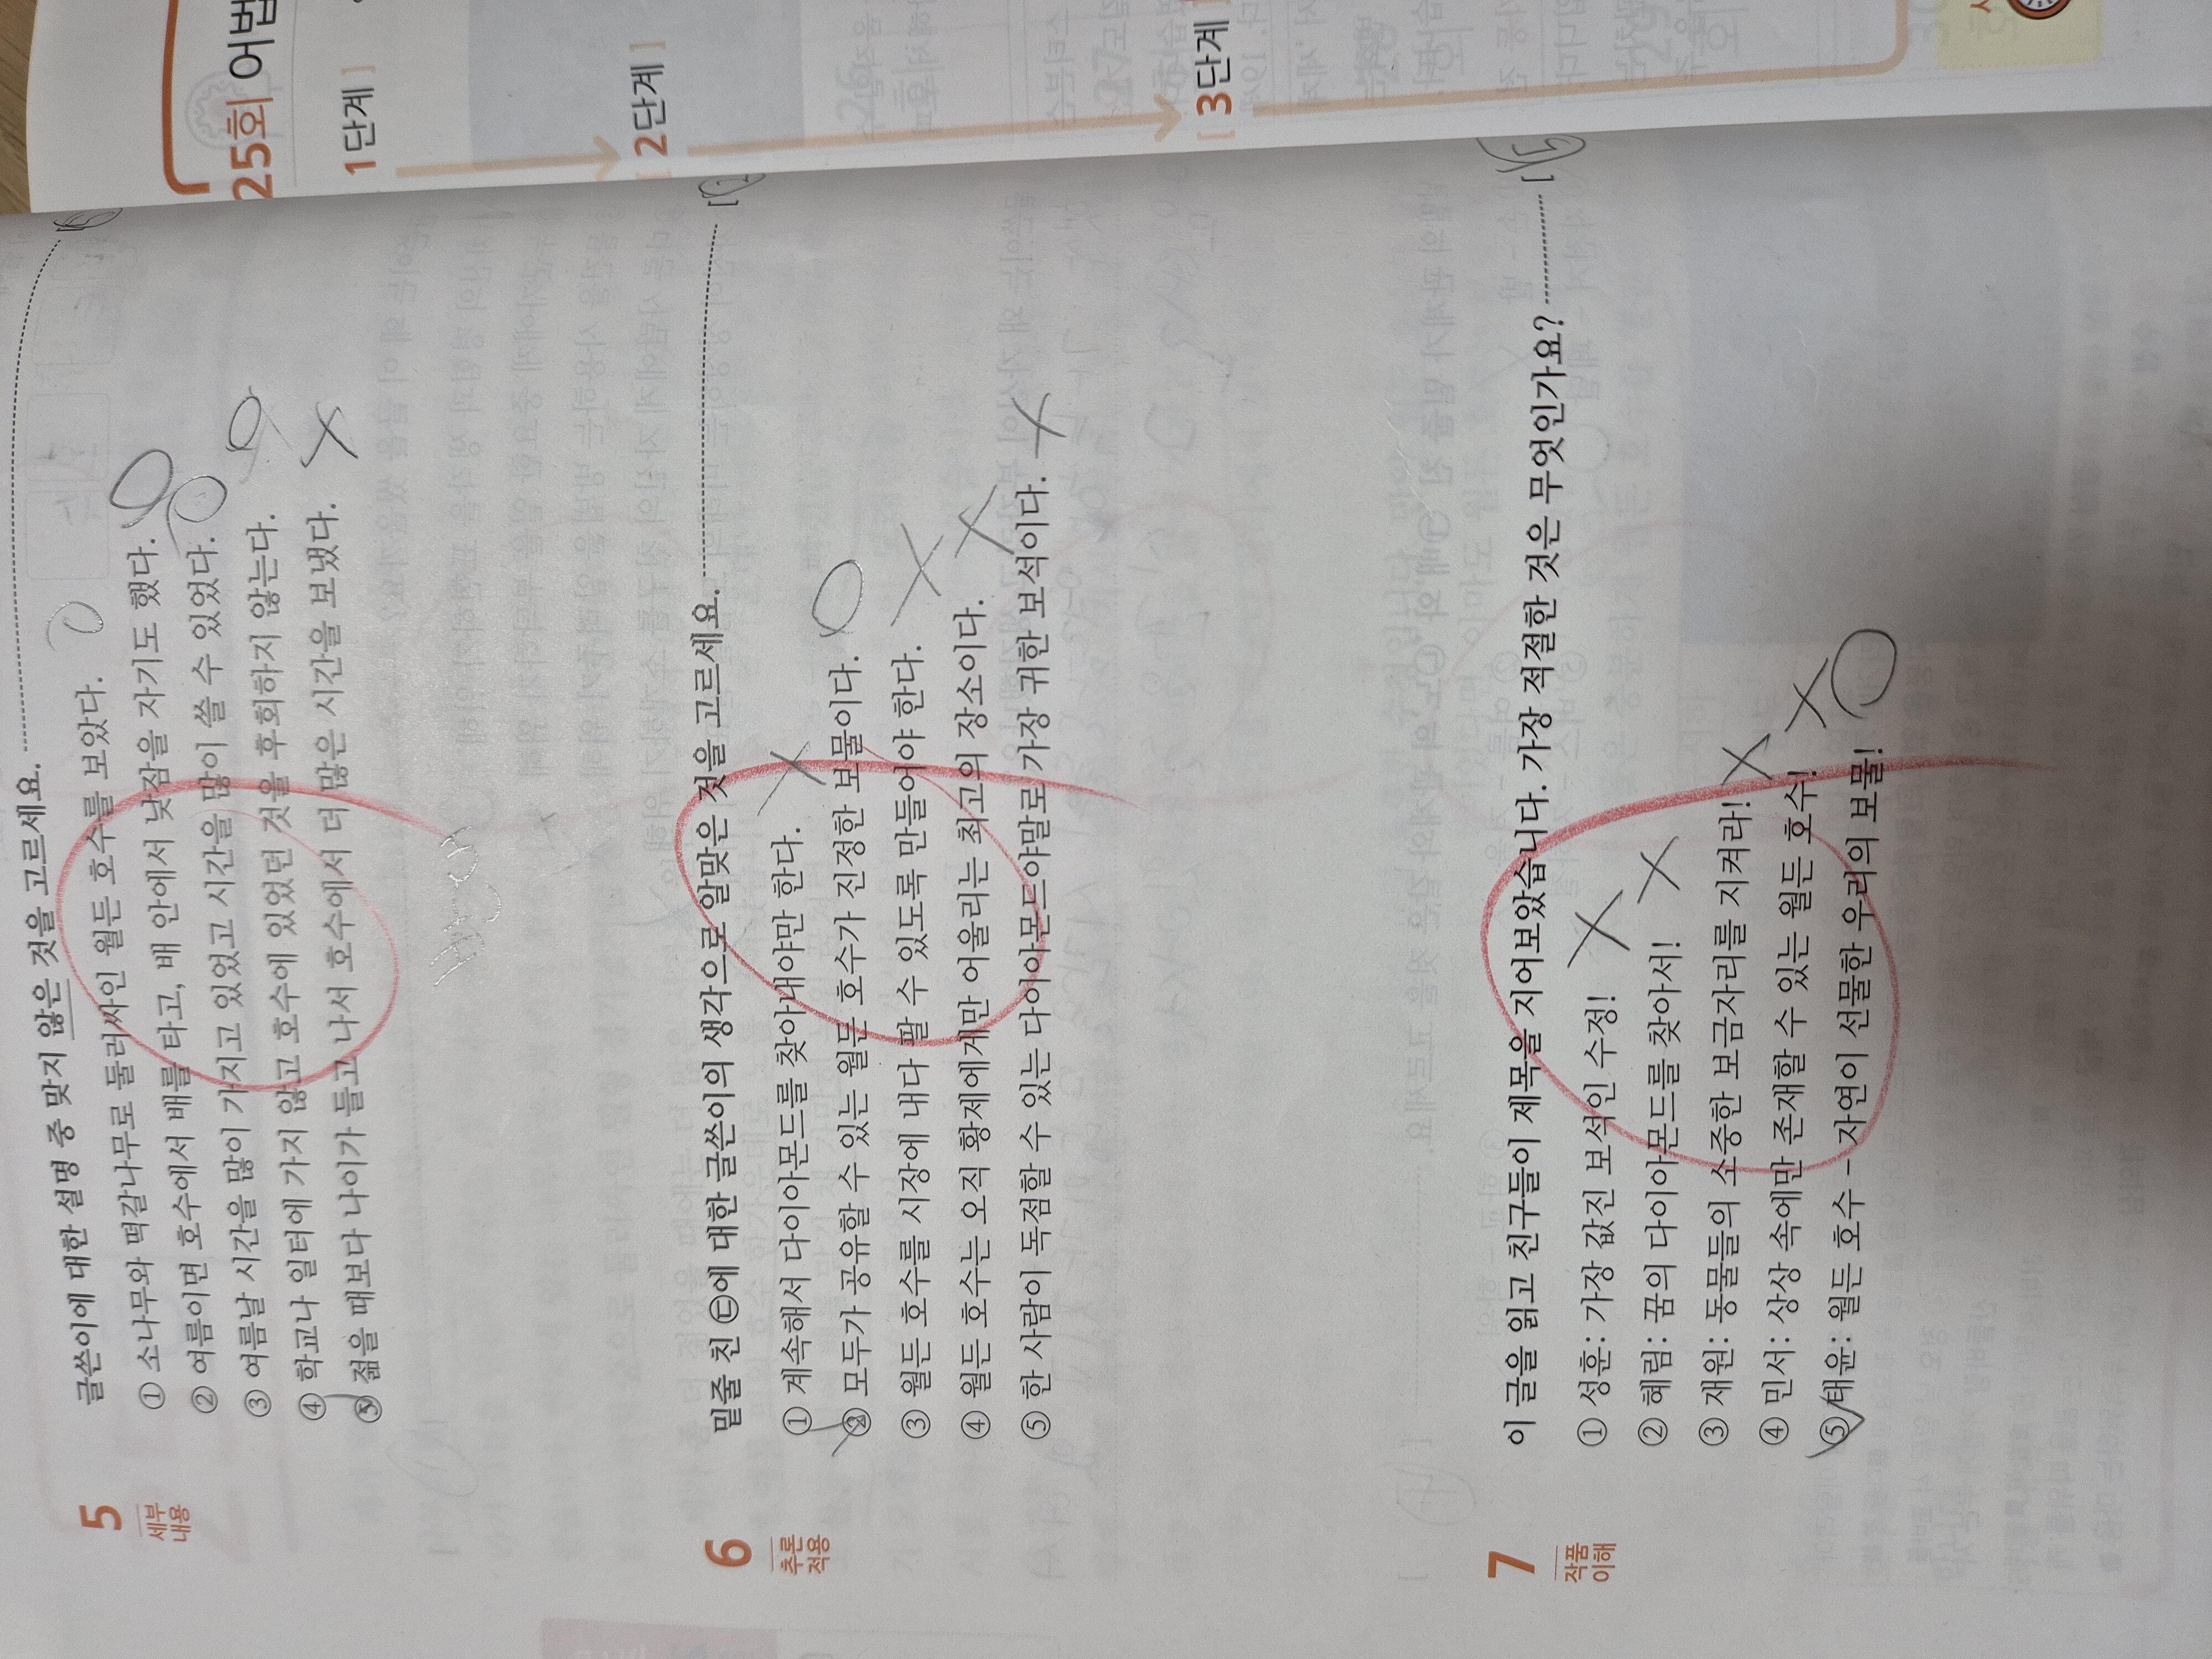 5
세부
내용
글쓴이에 대한 설명 중 맞지 않은 것을 고르세요.
① 소나무와 떡갈나무로 둘러싸인 월든 호수를 보았다.
② 여름이면 호수에서 배를 타고, 배 안에서 낮잠을 자기도 했다.
③ 여름날 시간을 많이 가지고 있었고 시간을 많이 쓸 수 있었다.
④ 학교나 일터에 가지 않고 호수에 있었던 것을 후회하지 않는다.
⑤ 젊을 때보다 나이가 들고 나서 호수에서 더 많은 시간을 보냈다.
6
추론
적용
밑줄 친 ㉢에 대한 글쓴이의 생각으로 알맞은 것을 고르세요.
① 계속해서 다이아몬드를 찾아내야만 한다.
② 모두가 공유할 수 있는 월든 호수가 진정한 보물이다.
③ 월든 호수를 시장에 내다 팔 수 있도록 만들어야 한다.
④ 월든 호수는 오직 황제에게만 어울리는 최고의 장소이다.
⑤ 한 사람이 독점할 수 있는 다이아몬드야말로 가장 귀한 보석이다.
7
작품
이해
이 글을 읽고 친구들이 제목을 지어보았습니다. 가장 적절한 것은 무엇인가요?
① 성훈: 가장 값진 보석인 수정!
② 혜림: 꿈의 다이아몬드를 찾아서!
③ 재원: 동물들의 소중한 보금자리를 지켜라!
④ 민서: 상상 속에만 존재할 수 있는 월든 호수!
⑤ 태윤: 월든 호수 – 자연이 선물한 우리의 보물!
25회 어법
1단계 ]
[ 2단계 ]
[ 3단계 ]